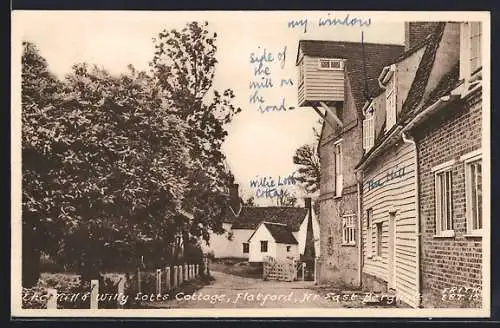 my window
side of
the
mill on
the
road.
Willie Lotts
Cottage
The Mill
The Mill & Willy Lotts Cottage, Flatford, Nr East Bergholt
FRITH
EBT.15